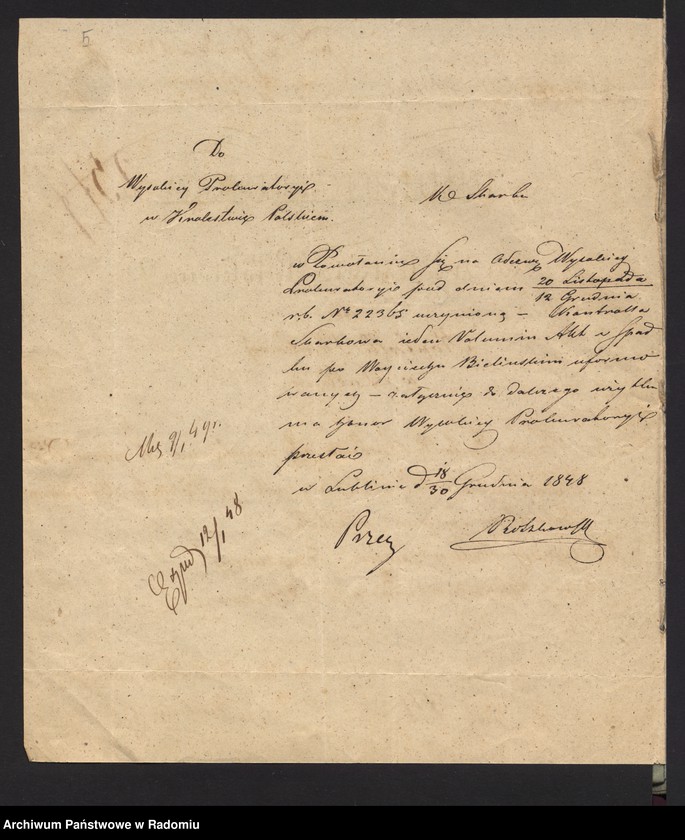 5
Do
Wysokiey Prokuratoryi
w Królestwie Polskiem.
Skarbu
w Powołaniu się na Odezwę Wysokiey
Prokuratoryi pod dniem 20 Listopada / 12 Grudnia
r.b. Nº 22365 uczynioną –
Skarbowa jeden Volumin Akt o Spad
ku po Woyciechu Bielinskim uformo
wanych – załączając do dalszego użytku
ma honor Wysokiey Prokuratoryi
przesłać
w Lublinie d 18/30 Grudnia 1848
9/1 49 r.
12/1 48
Archiwum Państwowe w Radomiu